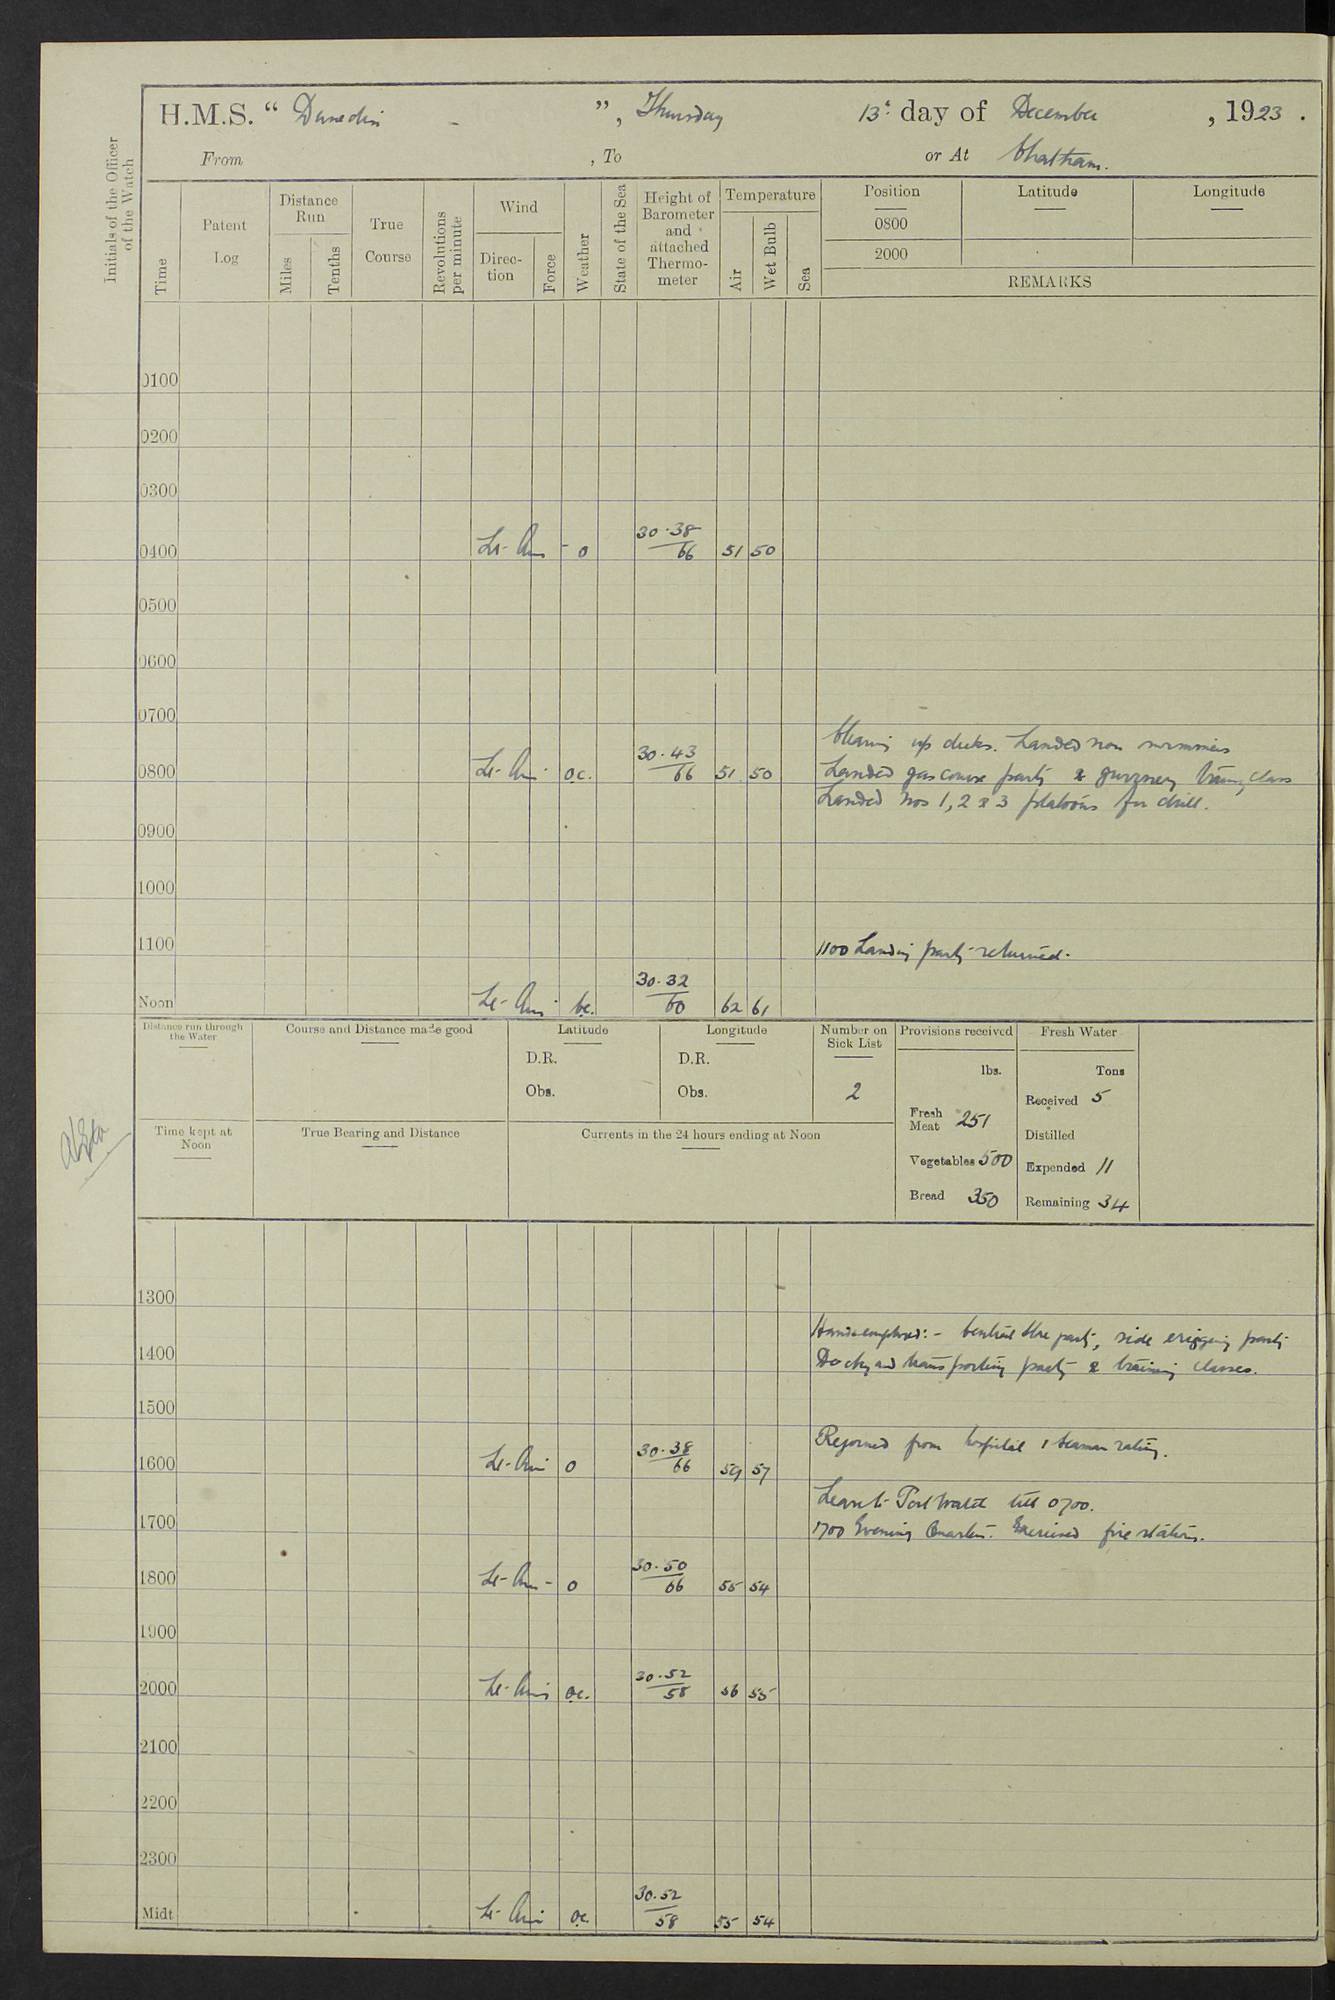 H.M.S. “ Dunedin ”, Thursday 13th day of December , 1923 .
From , To or At Chatham.
Initials of the Officer of the Watch
Time
Patent Log
Distance Run
Miles
Tenths
True Course
Revolutions per minute
Wind
Direc- tion
Force
Weather
State of the Sea
Height of Barometer and attached Thermo- meter
Temperature
Air
Wet Bulb
Sea
Position Latitude Longitude
0800
2000
REMARKS
0100
0200
0300
0400 Lt- Airs - o 30.38/66 51 50
0500
0600
0700
Cleaning up decks. Landed non swimmers
0800 Lt- Airs o.c. 30.43/66 51 50 Landed gas course party & gunnery training class
Landed Nos 1, 2 & 3 platoons for drill.
0900
1000
1100 1100 Landing party returned.
Noon Lt- Airs b.c. 30.32/60 62 61
Distance run through the Water
Course and Distance made good
Latitude
D.R.
Obs.
Longitude
D.R.
Obs.
Number on Sick List
2
Provisions received
lbs.
Fresh Meat 251
Vegetables 500
Bread 350
Fresh Water
Tons
Received 5
Distilled
Expended 11
Remaining 34
Time kept at Noon
True Bearing and Distance
Currents in the 24 hours ending at Noon
1300
Hands employed:- Central Store party, side rigging party
1400 Dockyard transporting party & training classes.
1500
Rejoined from hospital 1 seaman rating.
1600 Lt- Airs o 30.38/66 59 57
Leave to Port Watch till 0700.
1700 1700 Evening Quarters. Exercised fire stations.
1800 Lt- Airs - o 30.50/66 55 54
1900
2000 Lt- Airs o.c. 30.52/58 56 55
2100
2200
2300
Midt Lt- Airs o.c. 30.52/58 55 54